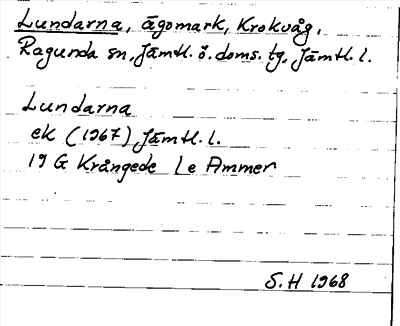 Lundarna, ägomark, Krokvåg,
Ragunda sn, Jämtl. ö. doms. tg, Jämtl. l.
Lundarna
ek (1967) Jämtl. l.
19 G Krångede 1 e Ammer
S.H 1968